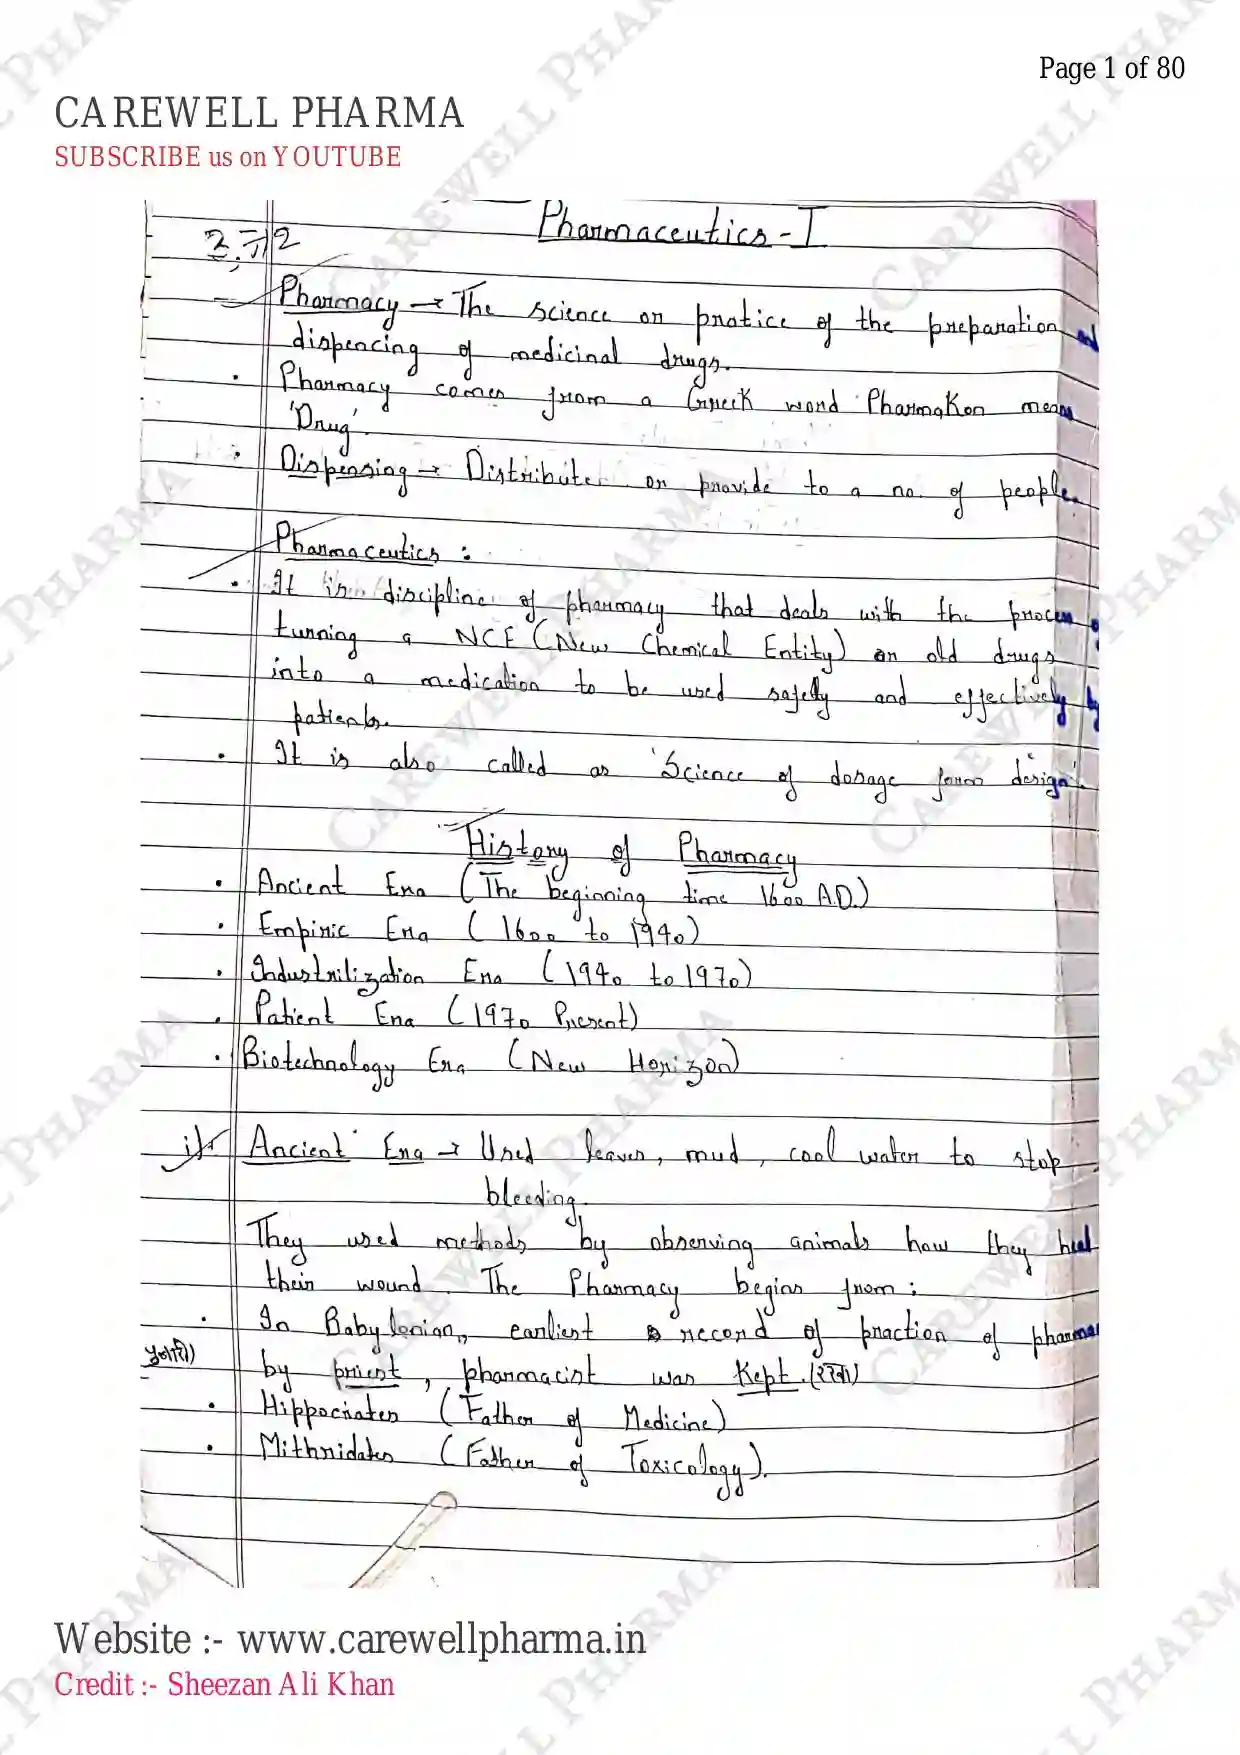 Page 1 of 80
CAREWELL PHARMA
SUBSCRIBE us on YOUTUBE
Pharmaceutics - I
Pharmacy → The science or pratice of the preparation and
dispencing of medicinal drugs.
• Pharmacy comes from a Greek word Pharmakon means
'Drug'.
• Dispensing → Distribute or provide to a no. of people.
Pharmaceutics :
• It is discipline of pharmacy that deals with the process of
turning a NCE (New Chemical Entity) or old drugs
into a medication to be used safely and effectively by
patients.
• It is also called as 'Science of dosage form design'.
History of Pharmacy
• Ancient Era (The beginning time 1600 A.D.)
• Empiric Era (1600 to 1940)
• Industrilization Era (1940 to 1970)
• Patient Era (1970 Present)
• Biotechnology Era (New Horizon)
i) Ancient Era → Used leaves, mud, cool water to stop
bleeding.
They used methods by observing animals how they heal
their wound. The Pharmacy begins from:
• In Babylonian, earliest record of praction of pharmacy
पुजारी) by priest, pharmacist was Kept. (रखा)
• Hippocrates (Father of Medicine)
• Mithridates (Father of Toxicology).
Website :- www.carewellpharma.in
Credit :- Sheezan Ali Khan
CAREWELL PHARMA